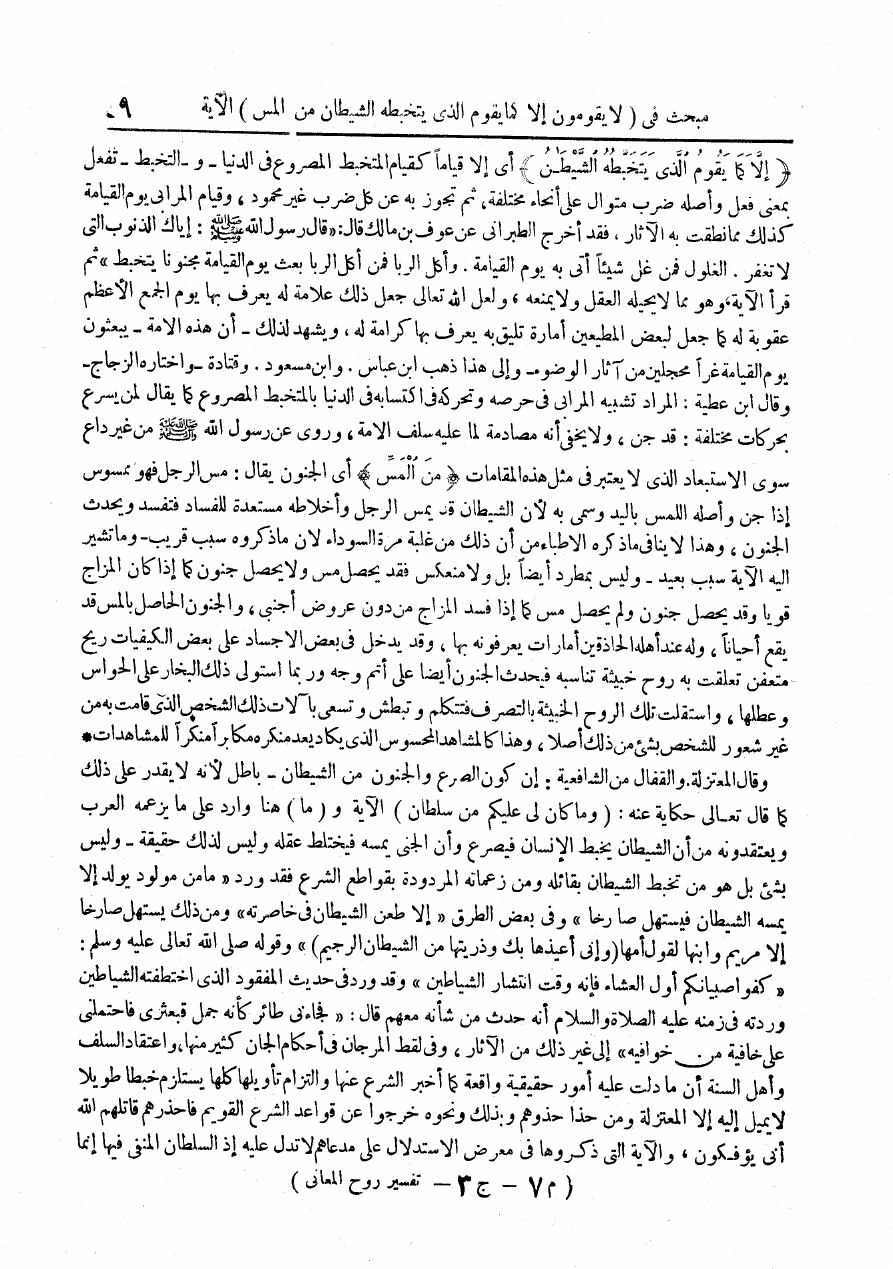 مبحث فى ( لا يقومون إلا كما يقوم الذى يتخبطه الشيطان من المس ) الآية ٩
﴿ إِلَّا كَمَا يَقُومُ الَّذى يَتَخَبَّطُهُ الشَّيْطَـٰنُ ﴾ أى إلا قياماً كقيام المتخبط المصروع فى الدنيا ـ و ـ التخبط ـ تفعل
بمعنى فعل وأصله ضرب متوال على أنحاء مختلفة، ثم تجوز به عن كل ضرب غير محمود ، وقيام المرابى يوم القيامة
كذلك مما نطقت به الآثار ، فقد أخرج الطبرانى عن عوف بن مالك قال: «قال رسول الله ﷺ : إياك الذنوب التى
لا تغفر . الغلول فمن غل شيئاً أتى به يوم القيامة . وأكل الربا فمن أكل الربا بعث يوم القيامة مجنونا يتخبط » ثم
قرأ الآية، وهو مما لا يحيله العقل ولا يمنعه ، ولعل الله تعالى جعل ذلك علامة له يعرف بها يوم الجمع الأعظم
عقوبة له كما جعل لبعض المطيعين أمارة تليق به يعرف بها كرامة له ، ويشهد لذلك ـ أن هذه الامة ـ يبعثون
يوم القيامة غراً محجلين من آثار الوضوء ـ وإلى هذا ذهب ابن عباس . وابن مسعود . وقتادة ـ واختاره الزجاج ـ
وقال ابن عطية : المراد تشبيه المرابى فى حرصه وتحركه فى اكتسابه فى الدنيا بالمتخبط المصروع كما يقال لمن يسرع
بحركات مختلفة : قد جن ، ولا يخفى أنه مصادمة لما عليه سلف الامة ، وروى عن رسول الله ﷺ من غير داع
سوى الاستبعاد الذى لا يعتبر فى مثل هذه المقامات ﴿ مِنَ الْمَسِّ ﴾ أى الجنون يقال : مس الرجل فهو ممسوس
إذا جن وأصله اللمس باليد وسمى به لأن الشيطان قد يمس الرجل وأخلاطه مستعدة للفساد فتفسد ويحدث
الجنون ، وهذا لا ينافى ما ذكره الاطباء من أن ذلك من غلبة مرة السوداء لان ما ذكروه سبب قريب ـ وما تشير
اليه الآية سبب بعيد ـ وليس بمطرد أيضاً بل ولا منعكس فقد يحصل مس ولا يحصل جنون كما إذا كان المزاج
قويا وقد يحصل جنون ولم يحصل مس كما إذا فسد المزاج من دون عروض أجنبى ، والجنون الحاصل بالمس قد
يقع أحياناً ، وله عند أهله الحاذقين أمارات يعرفونه بها ، وقد يدخل فى بعض الاجساد على بعض الكيفيات ريح
متعفن تعلقت به روح خبيثة تناسبه فيحدث الجنون أيضا على أتم وجه وربما استولى ذلك البخار على الحواس
وعطلها ، واستقلت تلك الروح الخبيثة بالتصرف فتتكلم و تبطش و تسعى بآلات ذلك الشخص الذى قامت به من
غير شعور للشخص بشئ من ذلك أصلا ، وهذا كالمشاهد المحسوس الذى يكاد يعد منكره مكابراً منكراً للمشاهدات *
وقال المعتزلة.والقفال من الشافعية : إن كون الصرع والجنون من الشيطان ـ باطل لأنه لا يقدر على ذلك
كما قال تعـالى حكاية عنه : ( وما كان لى عليكم من سلطان ) الآية و ( ما ) هنا وارد على ما يزعمه العرب
ويعتقدونه من أن الشيطان يخبط الإنسان فيصرع وأن الجنى يمسه فيختلط عقله وليس لذلك حقيقة ـ وليس
بشئ بل هو من تخبط الشيطان بقائله ومن زعماته المردودة بقواطع الشرع فقد ورد « ما من مولود يولد إلا
يمسه الشيطان فيستهل صارخا » وفى بعض الطرق « إلا طعن الشيطان فى خاصرته» ومن ذلك يستهل صارخا
إلا مريم وابنها لقول أمها (وإنى أعيذها بك وذريتها من الشيطان الرجيم) » وقوله صلى الله تعالى عليه وسلم :
« كفوا صبيانكم أول العشاء فإنه وقت انتشار الشياطين » وقد ورد فى حديث المفقود الذى اختطفته الشياطين
وردته فى زمنه عليه الصلاة والسلام أنه حدث من شأنه معهم قال : « فجاءنى طائر كأنه جمل قبعثرى فاحتملنى
على خافية من خوافيه» إلى غير ذلك من الآثار ، وفى لقط المرجان فى أحكام الجان كثير منها، واعتقاد السلف
وأهل السنة أن ما دلت عليه أمور حقيقية واقعة كما أخبر الشرع عنها والتزام تأويلها كلها يستلزم خبطا طويلا
لا يميل إليه إلا المعتزلة ومن حذا حذوهم وبذلك ونحوه خرجوا عن قواعد الشرع القويم فاحذرهم قاتلهم الله
أنى يؤفـكون ، والآية التى ذكـروها فى معرض الاستدلال على مدعاهم لا تدل عليه إذ السلطان المنفى فيها إنما
( م ٧ ـ ج ٣ ـ تفسير روح المعانى )